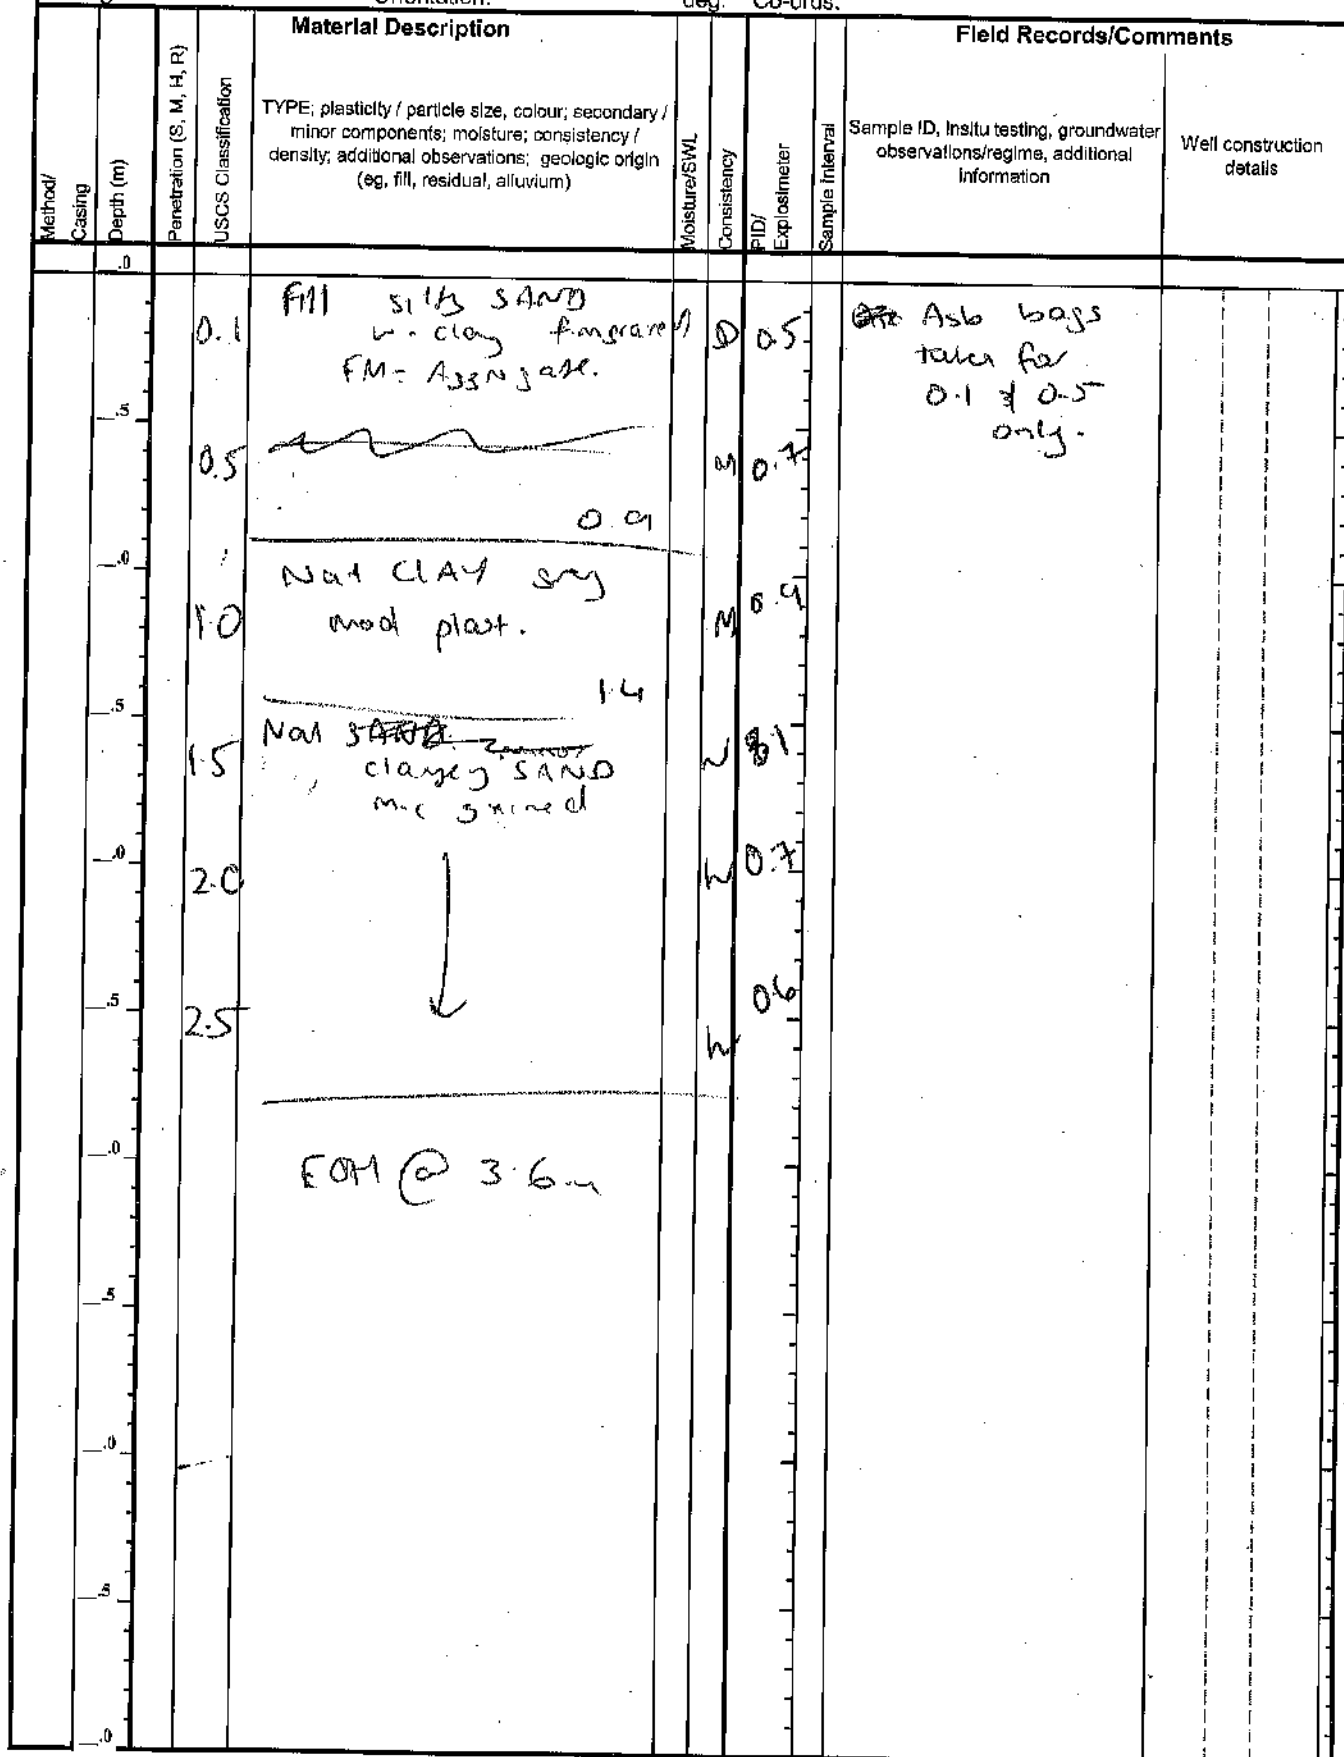 Orientation: deg. Co-ords:
Material Description
Field Records/Comments
Method/
Casing
Depth (m)
Penetration (S, M, H, R)
USCS Classification
TYPE; plasticity / particle size, colour; secondary /
minor components; moisture; consistency /
density; additional observations; geologic origin
(eg, fill, residual, alluvium)
Moisture/SWL
Consistency
PID/
Explosimeter
Sample Interval
Sample ID, Insitu testing, groundwater
observations/regime, additional
information
Well construction
details
.0
Fill silty SAND
0.1 w-clay D 0.5 Asb bags
FM- taken for
0.1 & 0.5
only.
.5
0.5 M 0.7
0.9
.0
Nat CLAY
1.0 mod plast. M 0.9
1.4
.5
Nat
1.5 clayey SAND
m-c grained
.0
2.0 W 0.7
.5
2.5 W 0.6
.0
EOH @ 3.6m
.5
.0
.5
.0